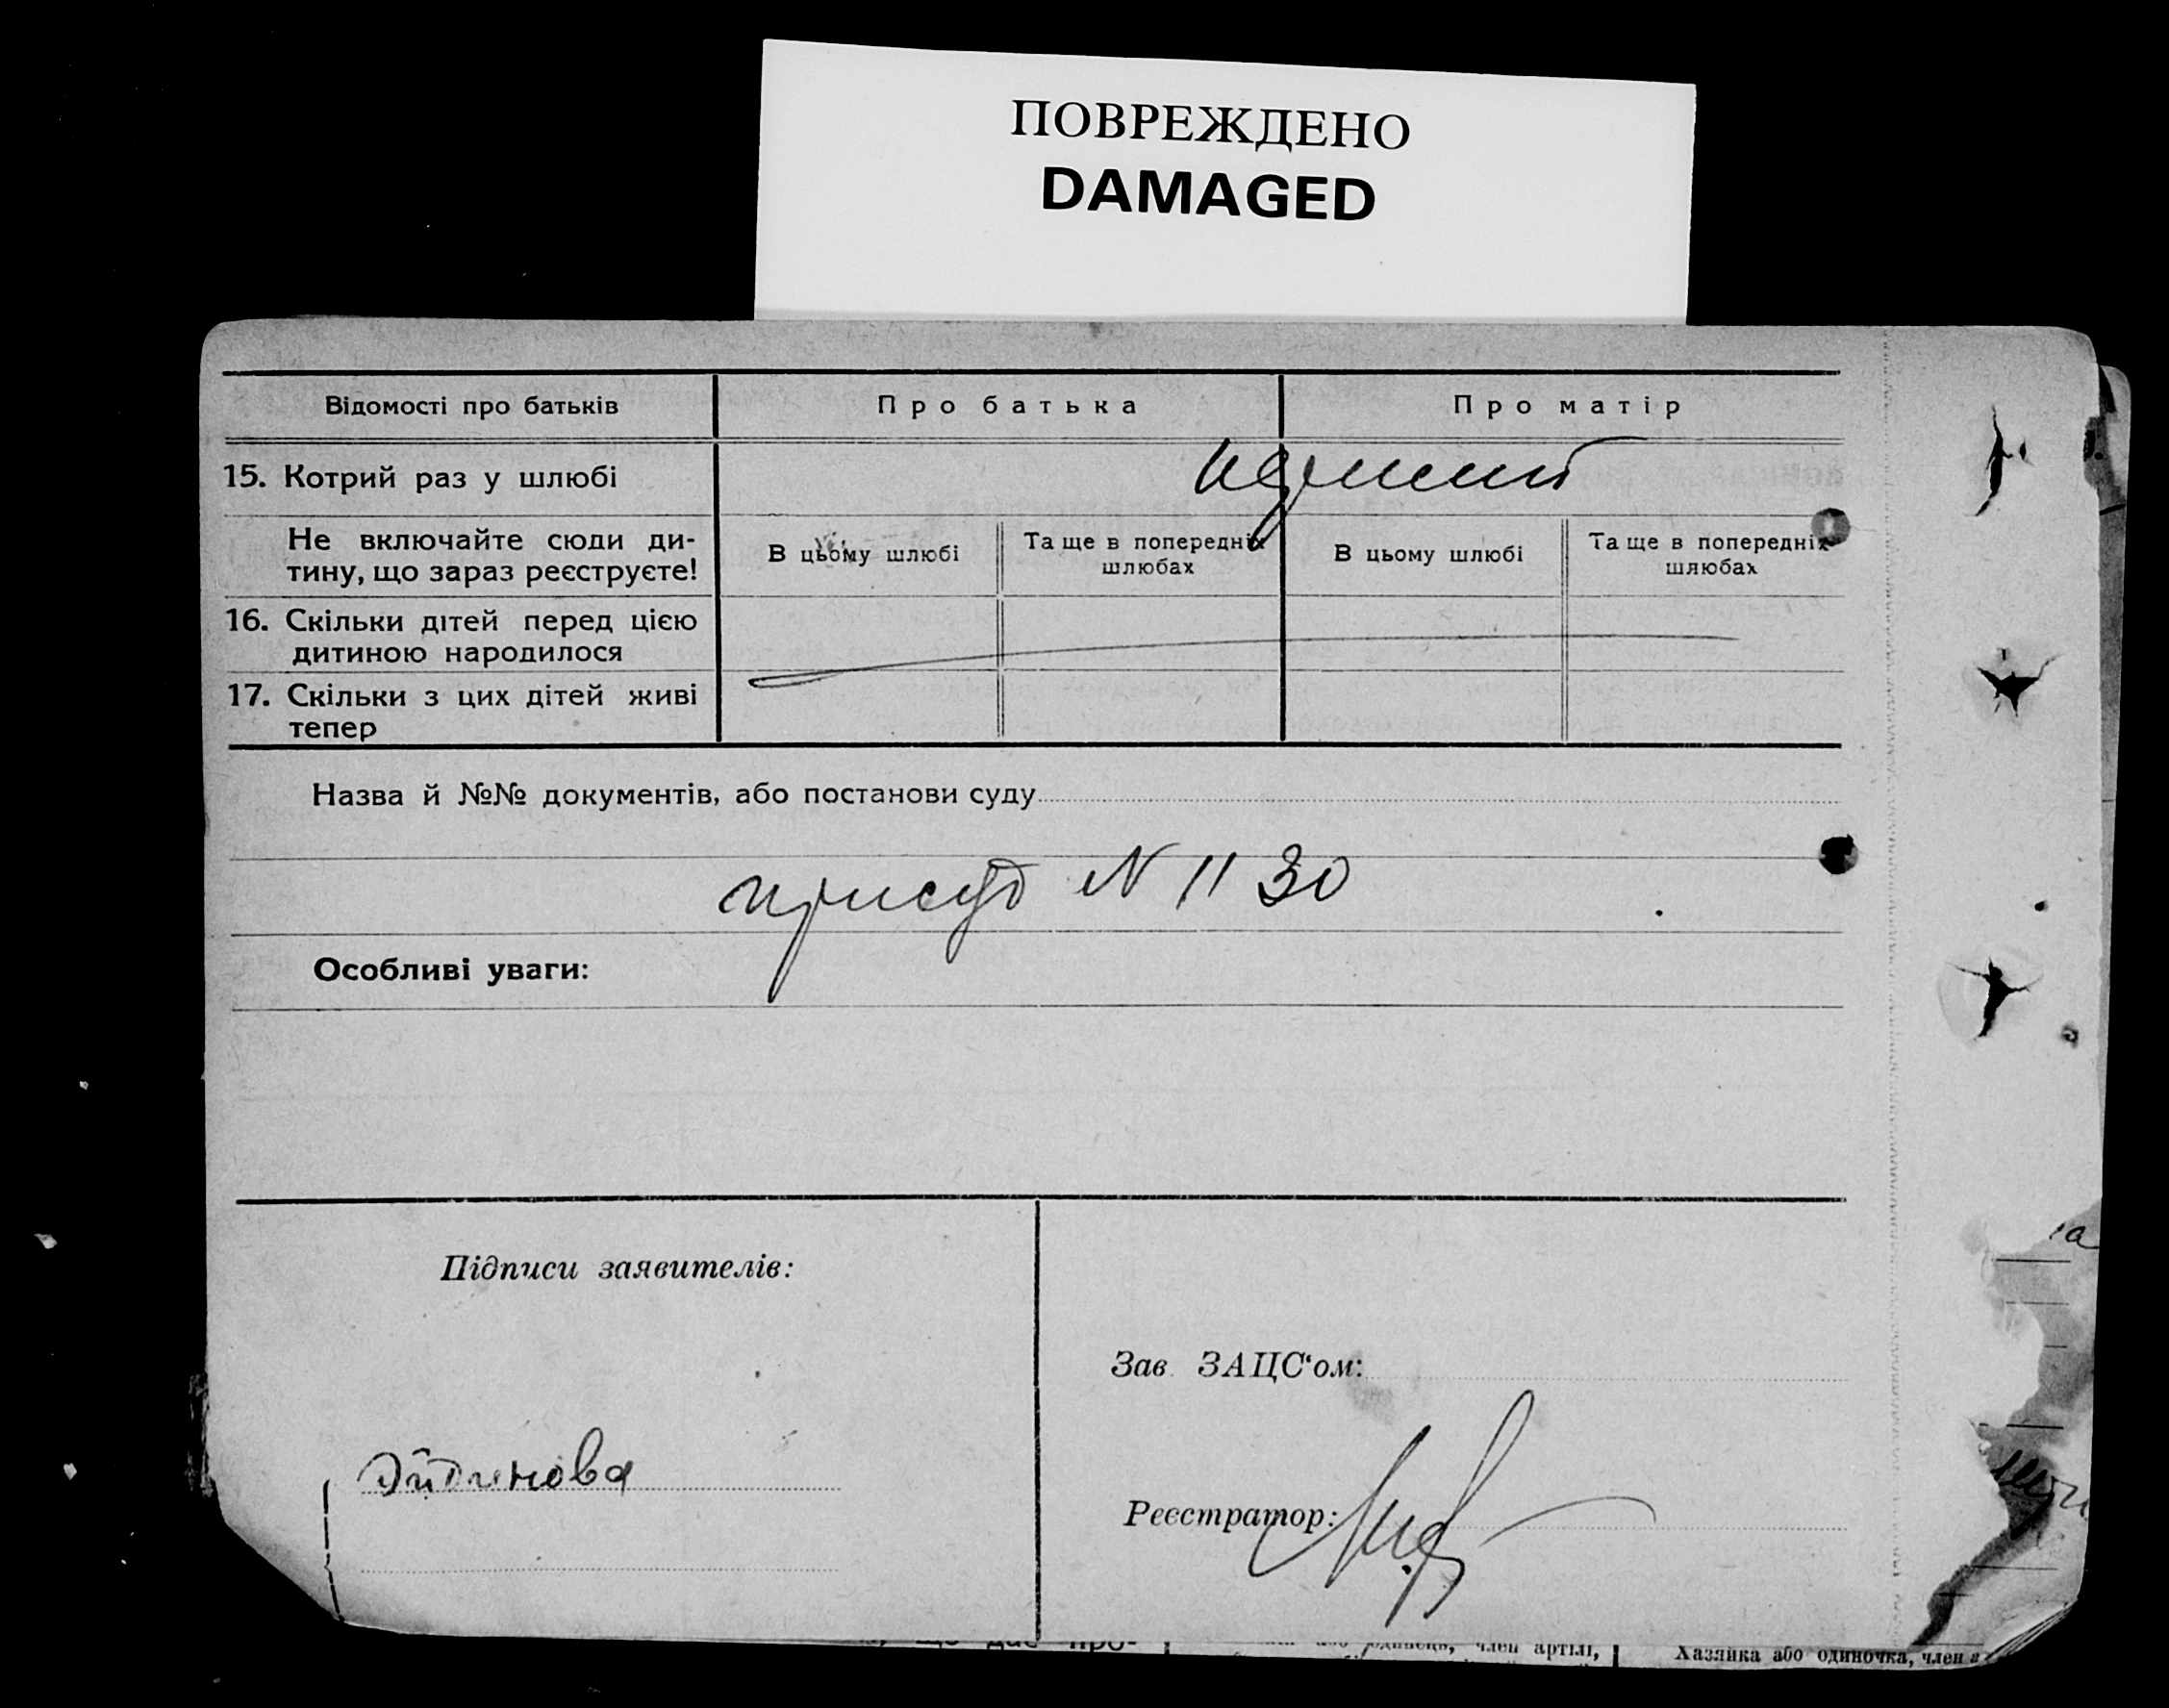 ПОВРЕЖДЕНО
DAMAGED
Відомості про батьків
Про батька
Про матір
15. Котрий раз у шлюбі
перший
Не включайте сюди ди-
тину, що зараз реєструєте!
В цьому шлюбі
Та ще в попередніх
шлюбах
В цьому шлюбі
Та ще в попередніх
шлюбах
16. Скільки дітей перед цією
дитиною народилося
17. Скільки з цих дітей живі
тепер
Назва й №№ документів, або постанови суду
присуд N 1130
Особливі уваги:
Підписи заявителів:
Зав. ЗАЦС‘ом:
Реєстратор:
що дає про-
член артілі,
Хазяйка або одиночка, член а